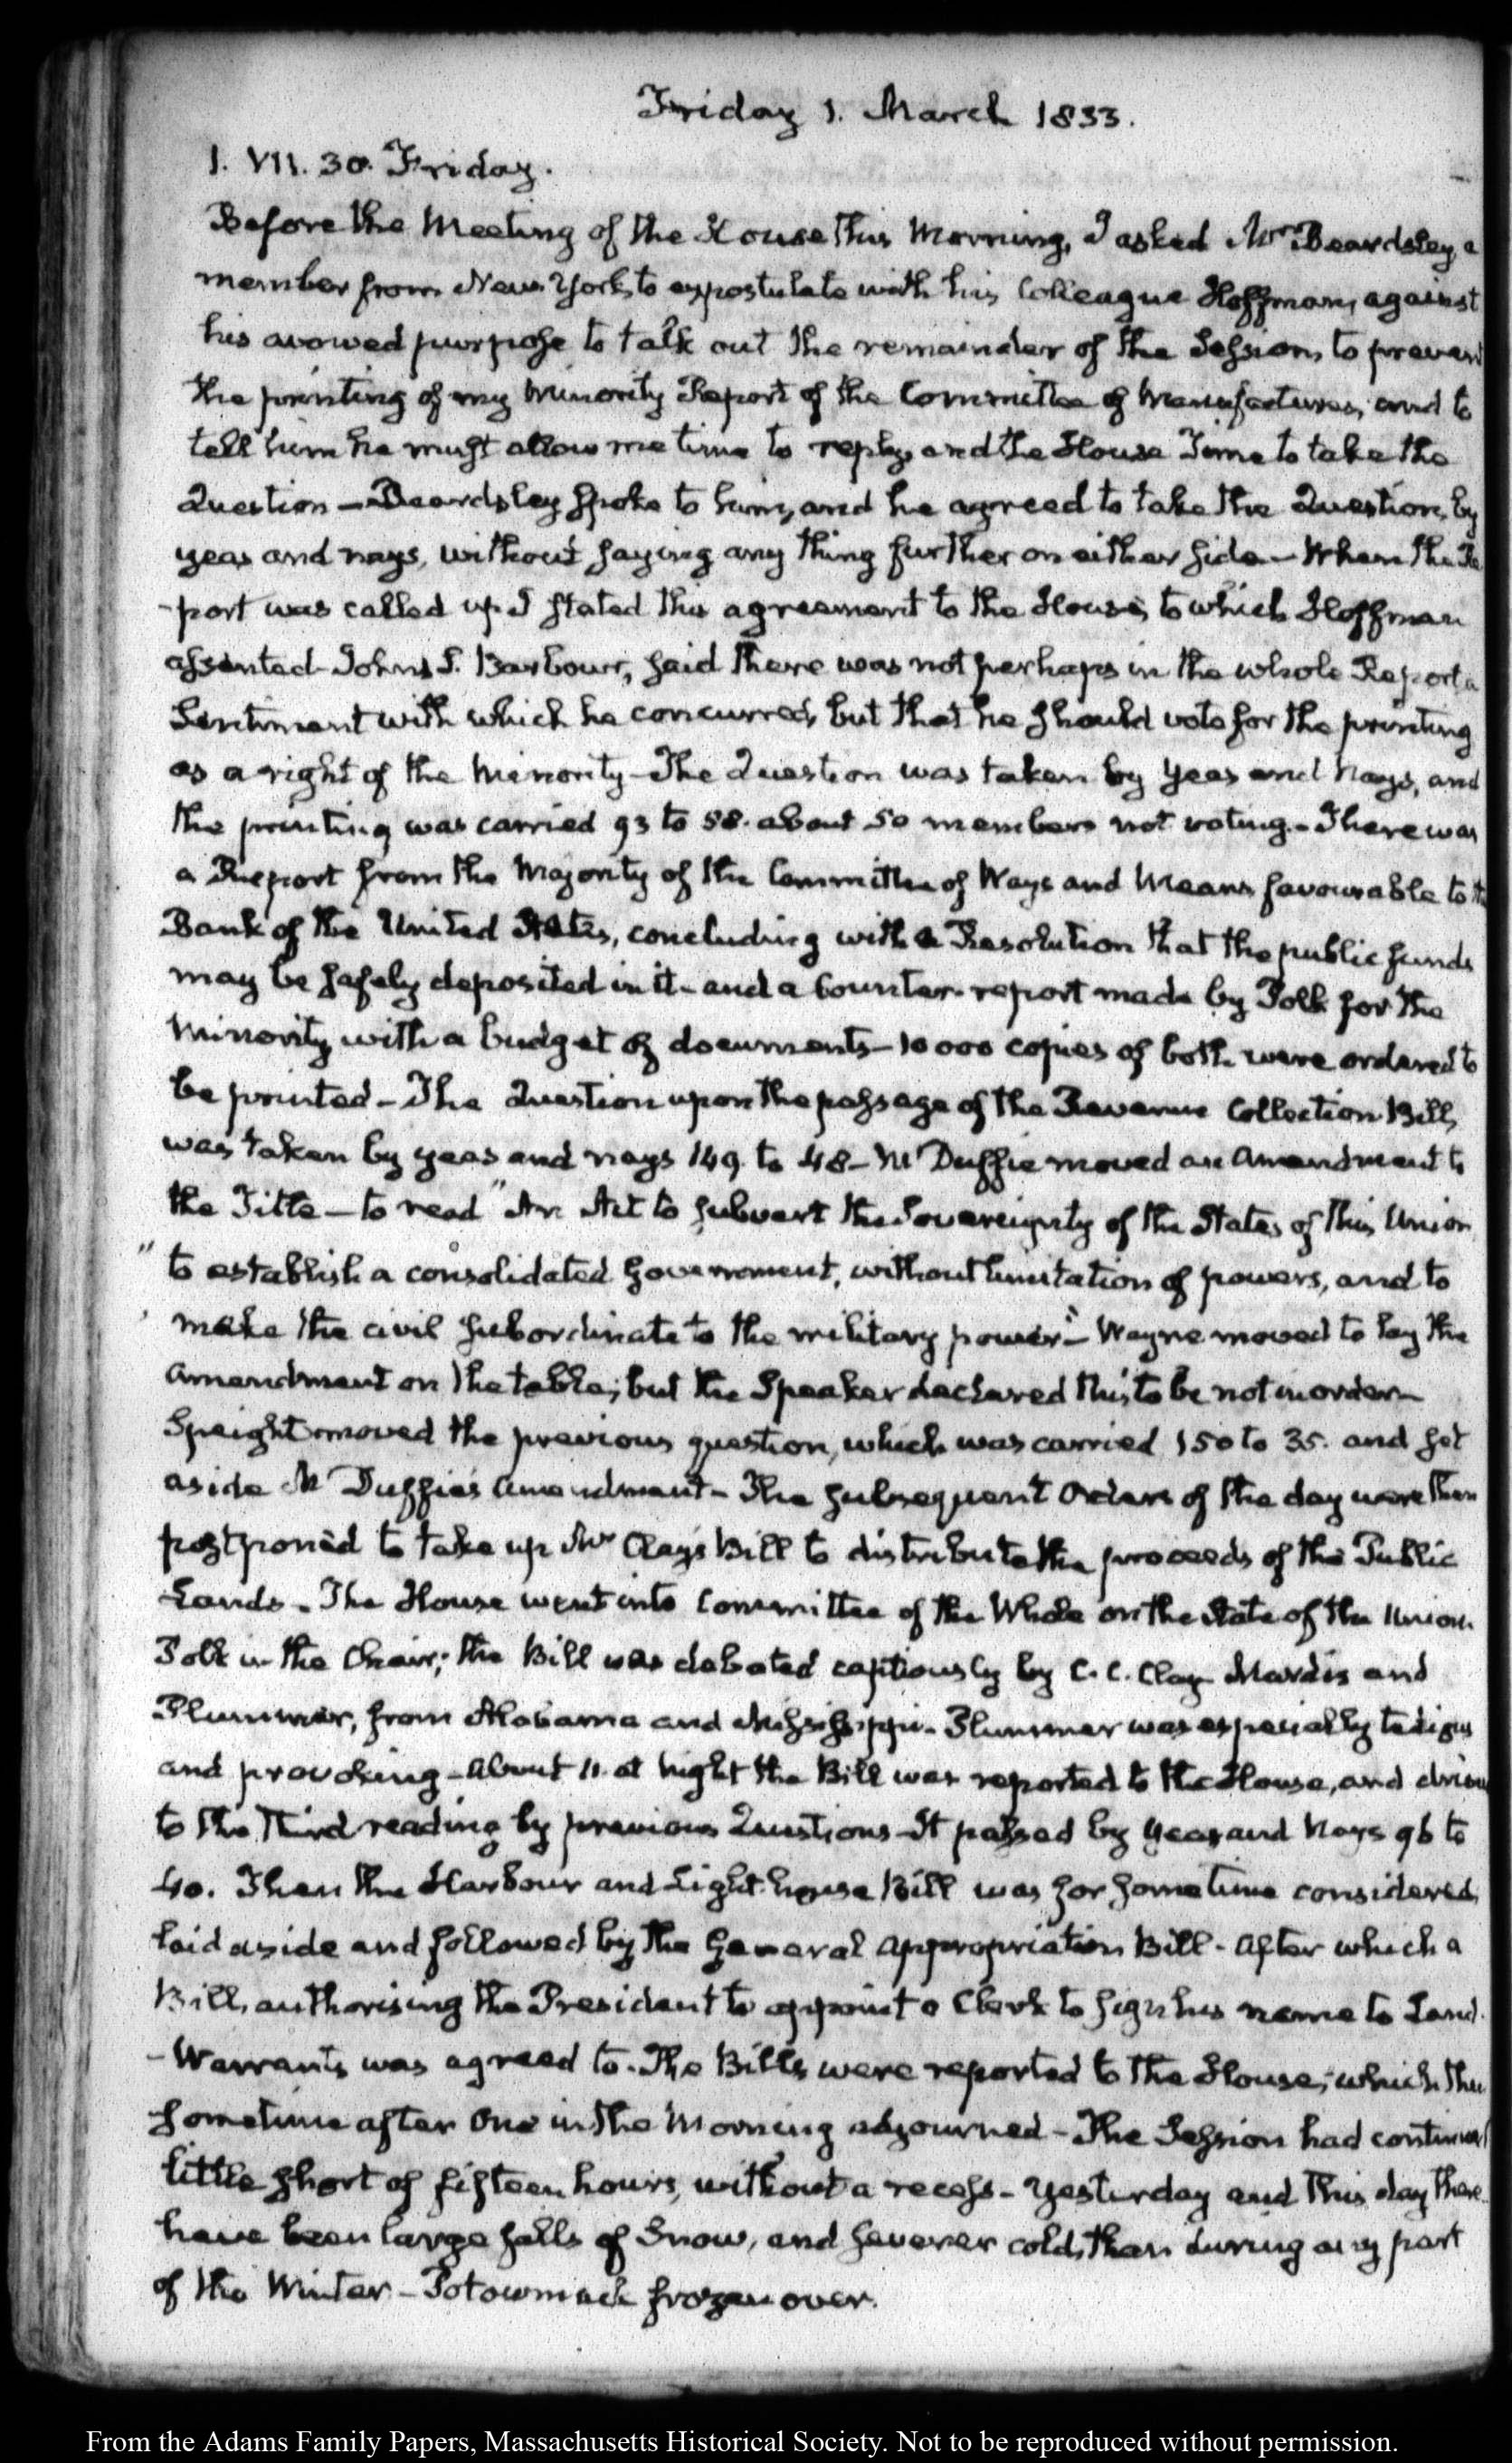 Friday 1. March 1833.
1. VII. 30. Friday.
Before the Meeting of the House this Morning, I asked Mr Beardsley, a
member from New York, to expostulate with his Colleague Hoffman, against
his avowed purpose to talk out the remainder of the Session, to prevent
the printing of my Minority Report of the Committee of Manufactures, and to
tell him he must allow me time to reply, and the House Time to take the
Question — Beardsley spoke to him, and he agreed to take the Question, by
yeas and nays, without saying any thing further on either side — When the Re
-port was called up I stated this agreement to the House, to which Hoffman
assented John S. Barbour, said there was not perhaps in the whole Report a
Sentiment with which he concurred, but that he should vote for the printing
as a right of the Minority — The Question was taken by Yeas and Nays, and
the printing was carried 93 to 58. about 50 members not voting. — There was
a Report from the Majority of the Committee of Ways and Means favourable to the
Bank of the United States, concluding with a Resolution that the public funds
may be safely deposited in it — and a Counter-report made by Polk for the
Minority with a budget of documents — 10000 copies of both were ordered to
be printed — The Question upon the passage of the Revenue Collection Bill,
was taken by yeas and nays 149. to 48 — McDuffie moved an Amendment to
the Title — to read "An Act to subvert the Sovereignty of the States of this Union
" to establish a consolidated Government, without limitation of powers, and to
' make the civil subordinate to the military power" — Wayne moved to lay the
Amendment on the table; but the Speaker declared this to be not in order —
Speight moved the previous question, which was carried 150 to 35. and set
aside McDuffie's Amendment — The subsequent Orders of the day were then
postponed to take up Mr Clay's Bill to distribute the proceeds of the Public
Lands. The House went into Committee of the Whole on the State of the Union
Polk in the Chair; the Bill was debated captiously by C. C. Clay Mardis and
Plummer, from Alabama and Mississippi — Plummer was especially tedious
and provoking — About 11. at Night the Bill was reported to the House, and driven
to the Third reading by previous Questions — It passed by Yeas and Nays 96 to
40. Then the Harbour and Light-house Bill was for some time considered,
laid aside and followed by the General Appropriation Bill — After which a
Bill, authorising the President to appoint a Clerk to sign his name to Land
-Warrants was agreed to. The Bills were reported to the House; which then
sometime after One in the Morning adjourned — The Session had continued
little short of fifteen hours, without a recess — Yesterday and this day there
have been large falls of Snow, and severer cold, than during any part
of the Winter — Potowmack frozen over.
From the Adams Family Papers, Massachusetts Historical Society. Not to be reproduced without permission.